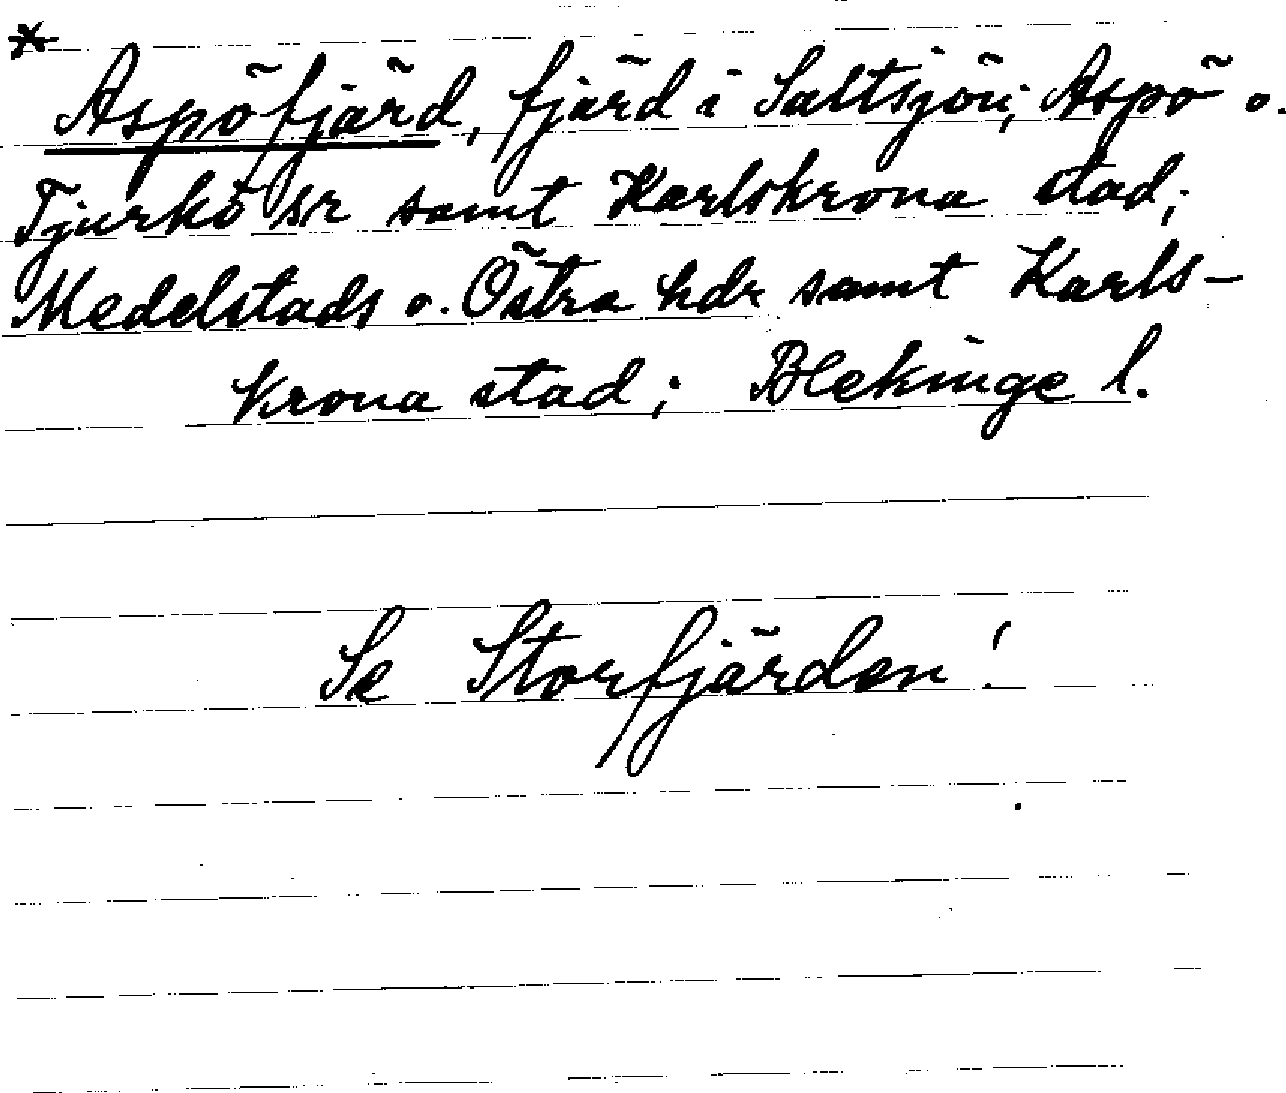 *
Aspöfjärd, fjärd i Saltsjön; Aspö o.
Tjurkö snr samt Karlskrona stad;
Medelstads o. Östra hdr samt Karls-
krona stad; Blekinge l.
Se Storfjärden!